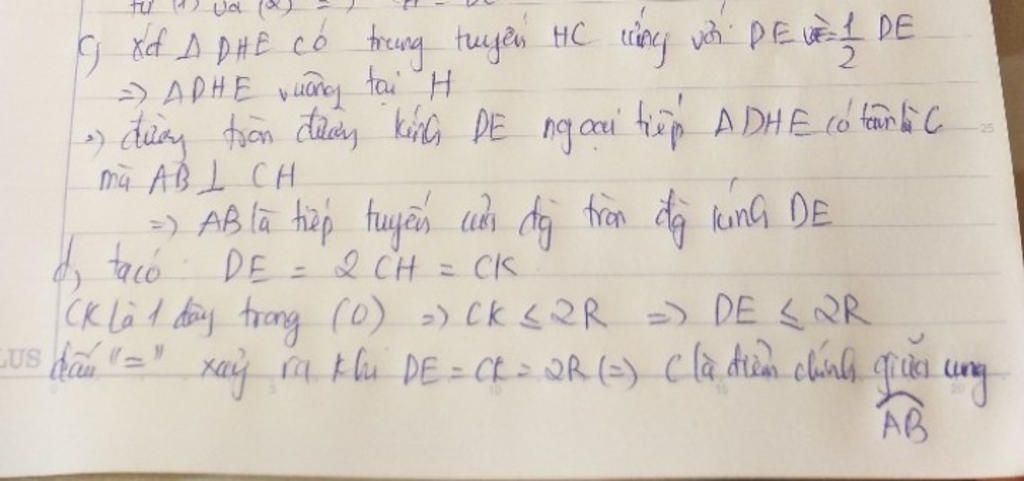 từ (1) và (2) =>
c, xét Δ DHE có trung tuyến HC ứng với DE = 1/2 DE
=> ΔDHE vuông tại H
=> đường tròn đường kính DE ngoại tiếp ΔDHE có tâm là C
mà AB ⊥ CH
=> AB là tiếp tuyến của đg tròn đg kính DE
d, ta có: DE = 2 CH = CK
CK là 1 dây trong (O) => CK ≤ 2R => DE ≤ 2R
LUS dấu "=" xảy ra khi DE = CK = 2R (=) C là điểm chính giữa cung
AB